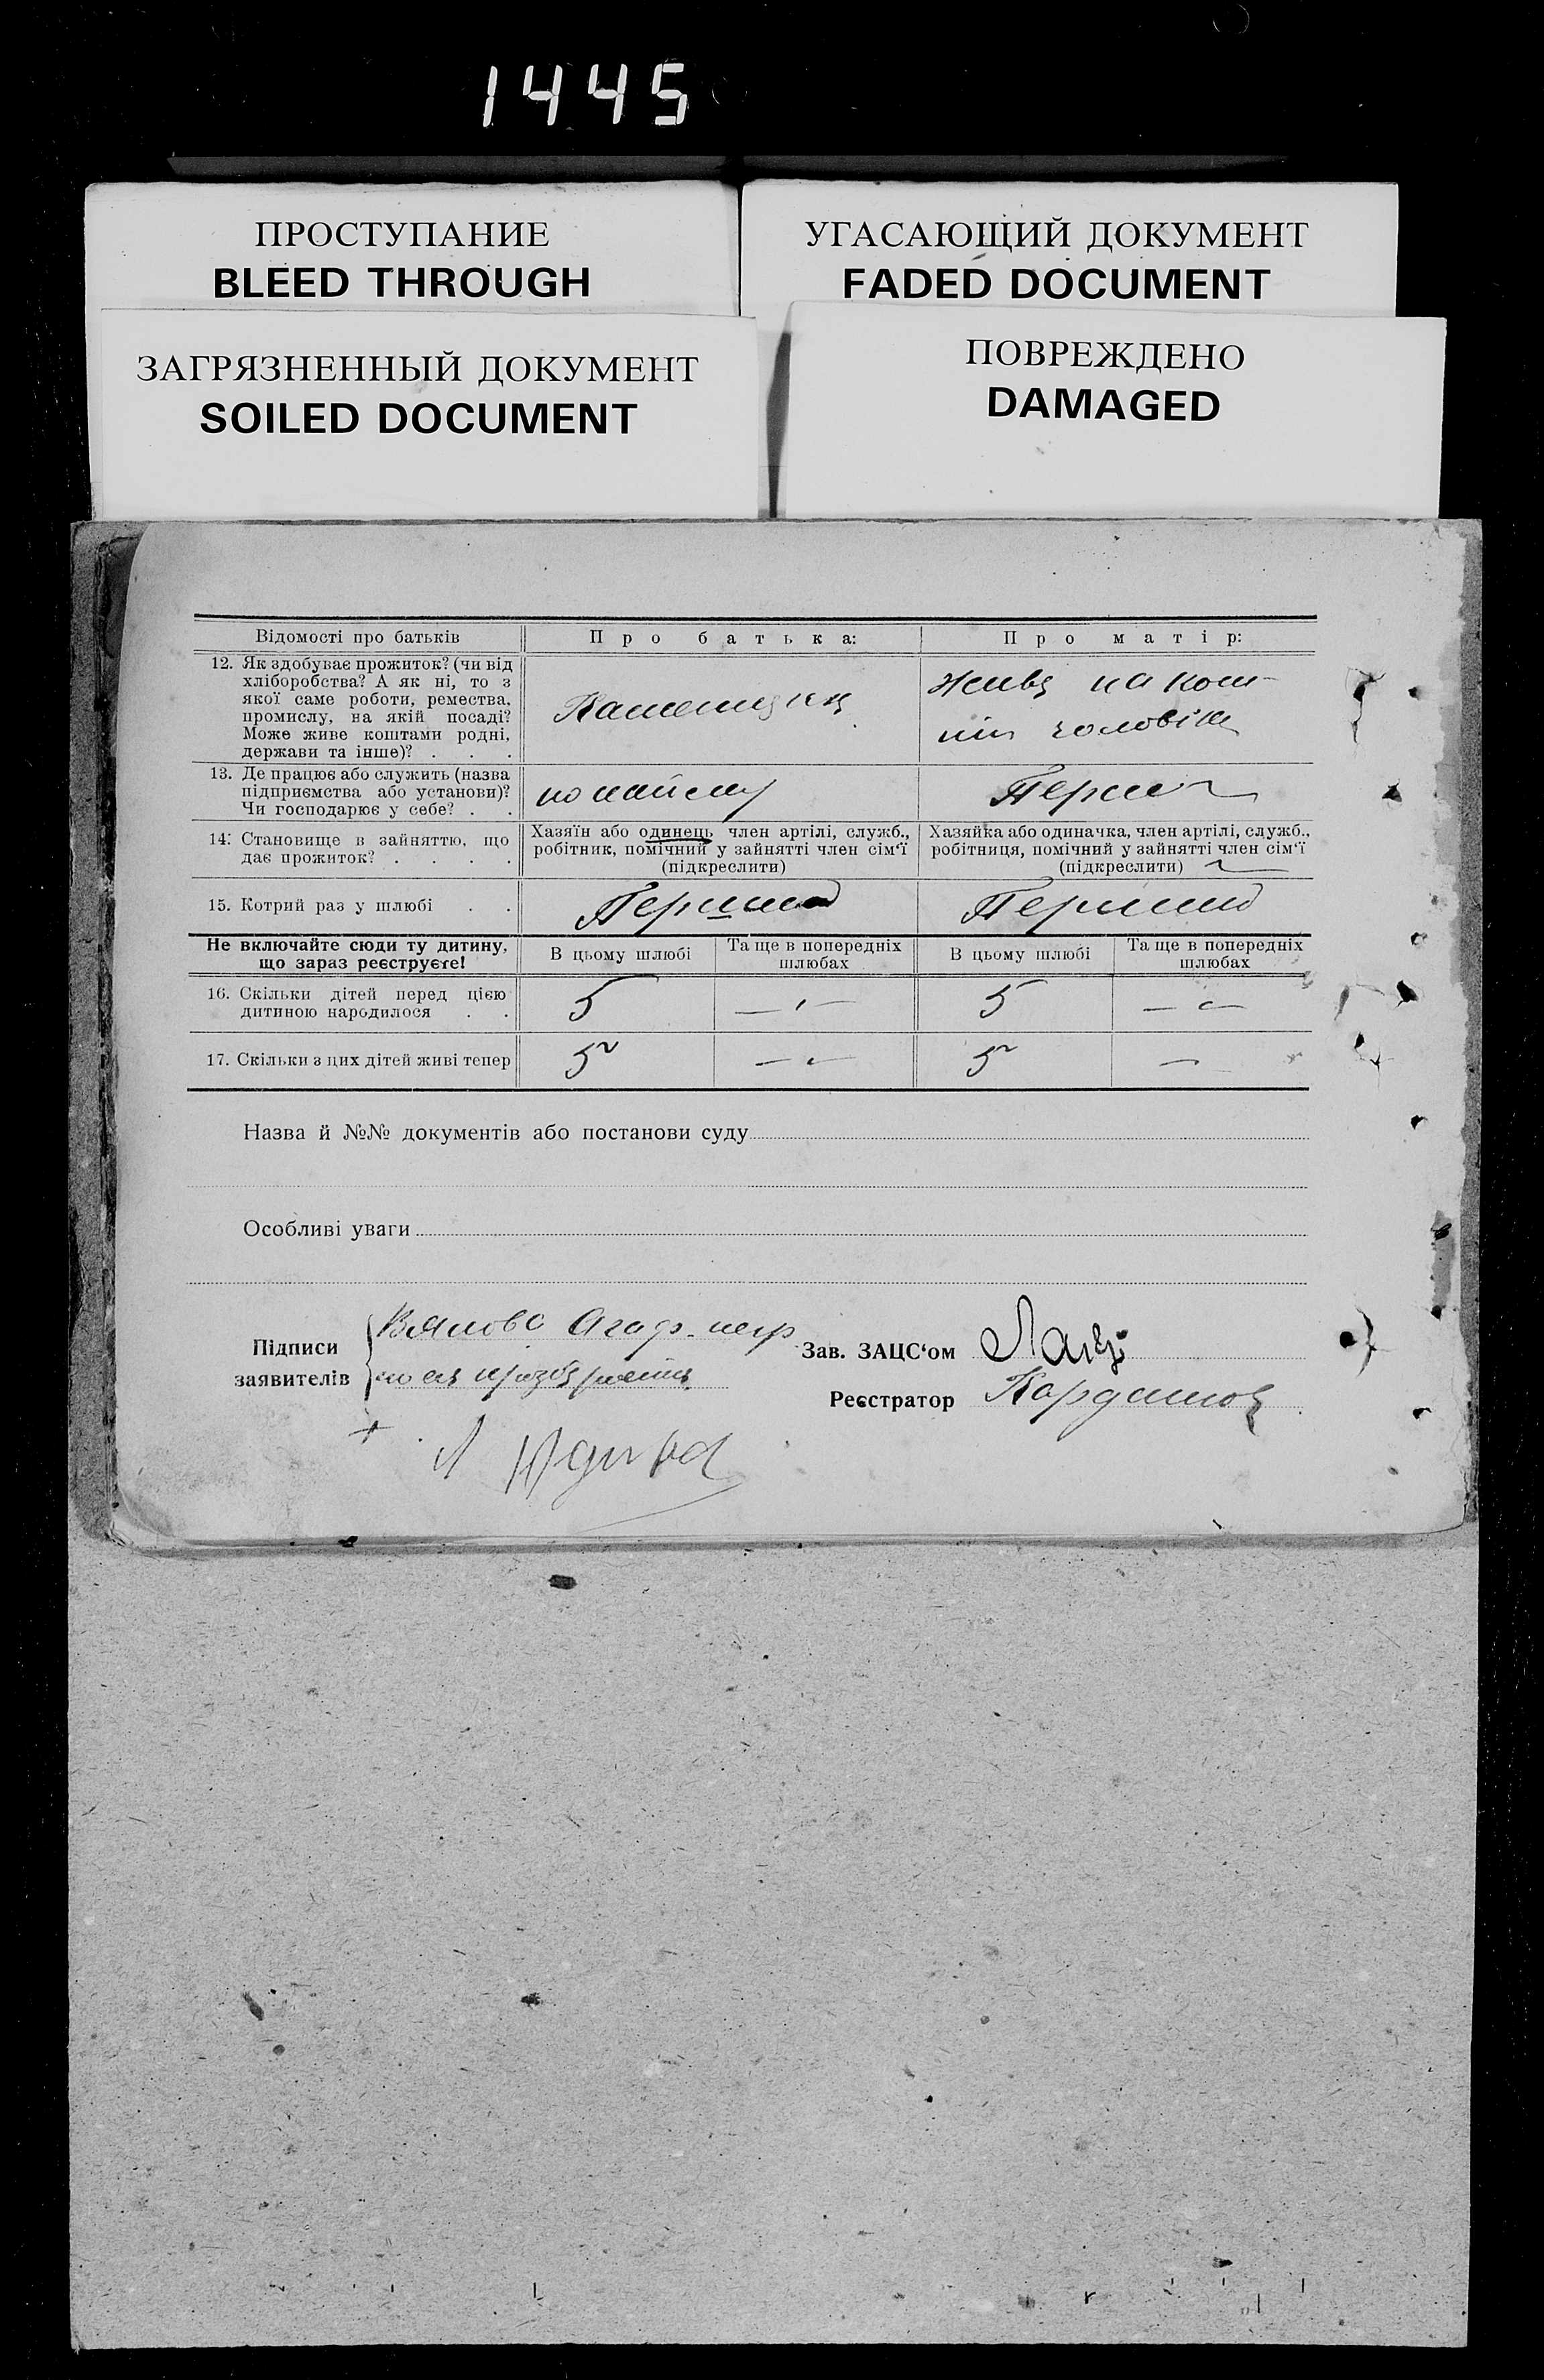 1445
ПРОСТУПАНИЕ
BLEED THROUGH
УГАСАЮЩИЙ ДОКУМЕНТ
FADED DOCUMENT
ЗАГРЯЗНЕННЫЙ ДОКУМЕНТ
SOILED DOCUMENT
ПОВРЕЖДЕНО
DAMAGED
Відомості про батьків
Про батька:
Про матір:
12. Як здобуває прожиток? (чи від
хліборобства? А як ні, то з
якої саме роботи, ремества,
промислу, на якій посаді?
Може живе коштами родні,
держави та інше)? . . .
живе на кош-
чоловіка
13. Де працює або служить (назва
підприємства або установи)?
Чи господарює у себе? . .
по найму
14. Становище в зайняттю, що
дає прожиток? . . . .
Хазяїн або одинець член артілі, служб.,
робітник, помічний у зайнятті член сім'ї
(підкреслити)
Хазяйка або одиначка, член артілі, служб.,
робітниця, помічний у зайнятті член сім'ї
(підкреслити)
15. Котрий раз у шлюбі . .
Перший
Перший
Не включайте сюди ту дитину,
що зараз реєструєте!
В цьому шлюбі
Та ще в попередніх
шлюбах
В цьому шлюбі
Та ще в попередніх
шлюбах
16. Скільки дітей перед цією
дитиною народилося . .
5
—
5
—
17. Скільки з цих дітей живі тепер
5
—
5
—
Назва й №№ документів або постанови суду
Особливі уваги
Підписи
заявителів
Зав. ЗАЦС'ом
Реєстратор